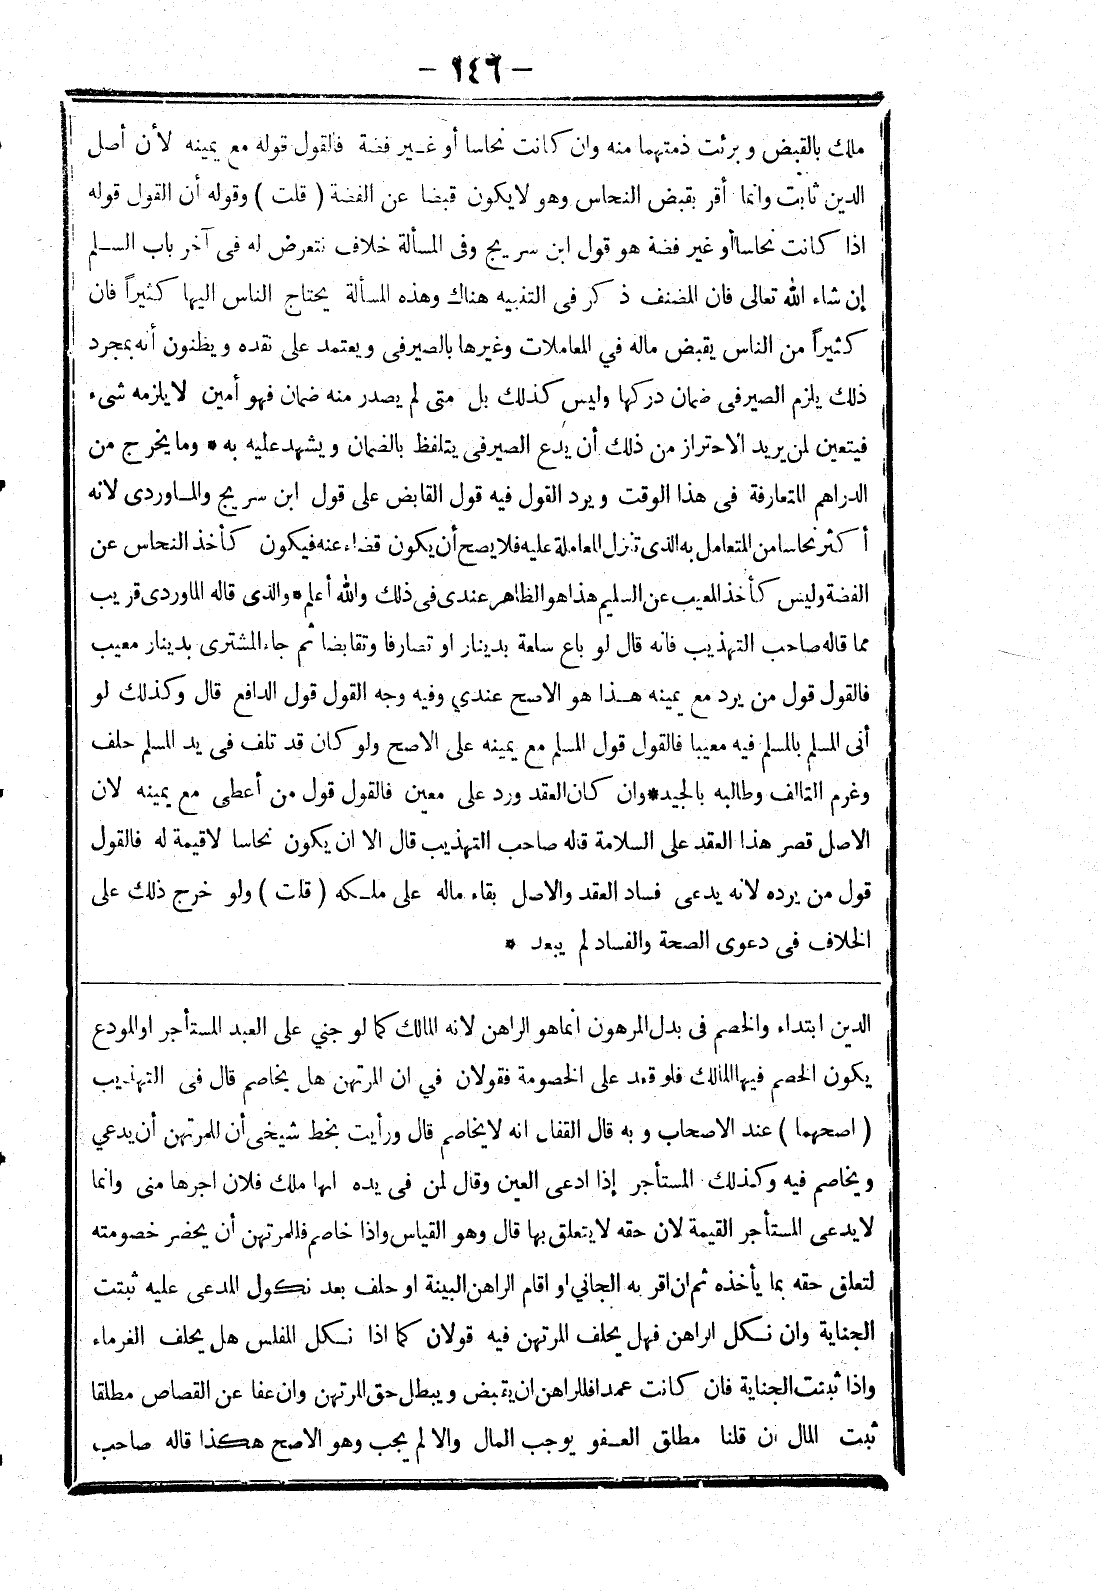 – ١٤٦ –
ملك بالقبض وبرئت ذمتهما منه وان كانت نحاسا أو غـير فضة فالقول قوله مع يمينه لأن أصل
الدين ثابت وانما أقر بقبض النحاس وهو لايكون قبضا عن الفضة ( قلت ) وقوله أن القول قوله
اذا كانت نحاسا أو غير فضة هو قول ابن سريج وفى المسألة خلاف نتعرض له فى آخر باب السـلم
إن شاء الله تعالى فان المصنف ذكر فى التنبيه هناك وهذه المسألة يحتاج الناس اليها كثيراً فان
كثيراً من الناس يقبض ماله في المعاملات وغيرها بالصيرفى ويعتمد على نقده ويظنون أنه بمجرد
ذلك يلزم الصيرفى ضمان دركها وليس كذلك بل متى لم يصدر منه ضمان فهو أمين لايلزمه شىء
فيتعين لمن يريد الاحتراز من ذلك أن يدع الصيرفى يتلفظ بالضمان ويشهد عليه به * وما يخرج من
الدراهم المتعارفة فى هذا الوقت ويرد القول فيه قول القابض على قول ابن سريج والمـاوردى لانه
أكثر نحاسا من المتعامل به الذى تنزل المعاملة عليه فلا يصح أن يكون قضاء عنه فيكون كأخذ النحاس عن
الفضة وليس كأخذ المعيب عن السليم هذا هو الظاهر عندى فى ذلك والله أعلم * والذى قاله الماوردى قريب
مما قاله صاحب التهذيب فانه قال لو باع سلعة بدينار او تصارفا وتقابضا ثم جاء المشترى بدينار معيب
فالقول قول من يرد مع يمينه هـذا هو الاصح عندي وفيه وجه القول قول الدافع قال وكذلك لو
أنى المسلم بالمسلم فيه معيبا فالقول قول المسلم مع يمينه على الاصح ولو كان قد تلف فى يد المسلم حلف
وغرم التالف وطالبه بالجيد * وان كان العقد ورد على معين فالقول قول من أعطى مع يمينه لان
الاصل قصر هذا العقد على السلامة قاله صاحب التهذيب قال الا ان يكون نحاسا لاقيمة له فالقول
قول من يرده لانه يدعى فساد العقد والاصل بقاء ماله على ملـكه ( قلت ) ولو خرج ذلك على
الخلاف فى دعوى الصحة والفساد لم يبعد *
الدين ابتداء والخصم فى بدل المرهون انما هو الراهن لانه المالك كما لو جني على العبد المستأجر او المودع
يكون الخصم فيها المالك فلو قعد على الخصومة فقولان في ان المرتهن هل يخاصم قال فى التهذيب
( اصحهما ) عند الاصحاب وبه قال القفال انه لايخاصم قال ورأيت بخط شيخى أن للمرتهن أن يدعي
ويخاصم فيه وكذلك المستأجر إذا ادعى العين وقال لمن فى يده انها ملك فلان اجرها منى وانما
لايدعى المستأجر القيمة لان حقه لايتعلق بها قال وهو القياس واذا خاصم فللمرتهن أن يحضر خصومته
لتعلق حقه بما يأخذه ثم ان اقر به الجاني او اقام الراهن البينة او حلف بعد نكول المدعى عليه ثبتت
الجناية وان نكل الراهن فهل يحلف المرتهن فيه قولان كما اذا نكل المفلس هل يحلف الغرماء
واذا ثبتت الجناية فان كانت عمدا فللراهن ان يقبض ويبطل حق المرتهن وان عفا عن القصاص مطلقا
ثبت المال ان قلنا مطلق العـفو يوجب المال والا لم يجب وهو الاصح هكذا قاله صاحب